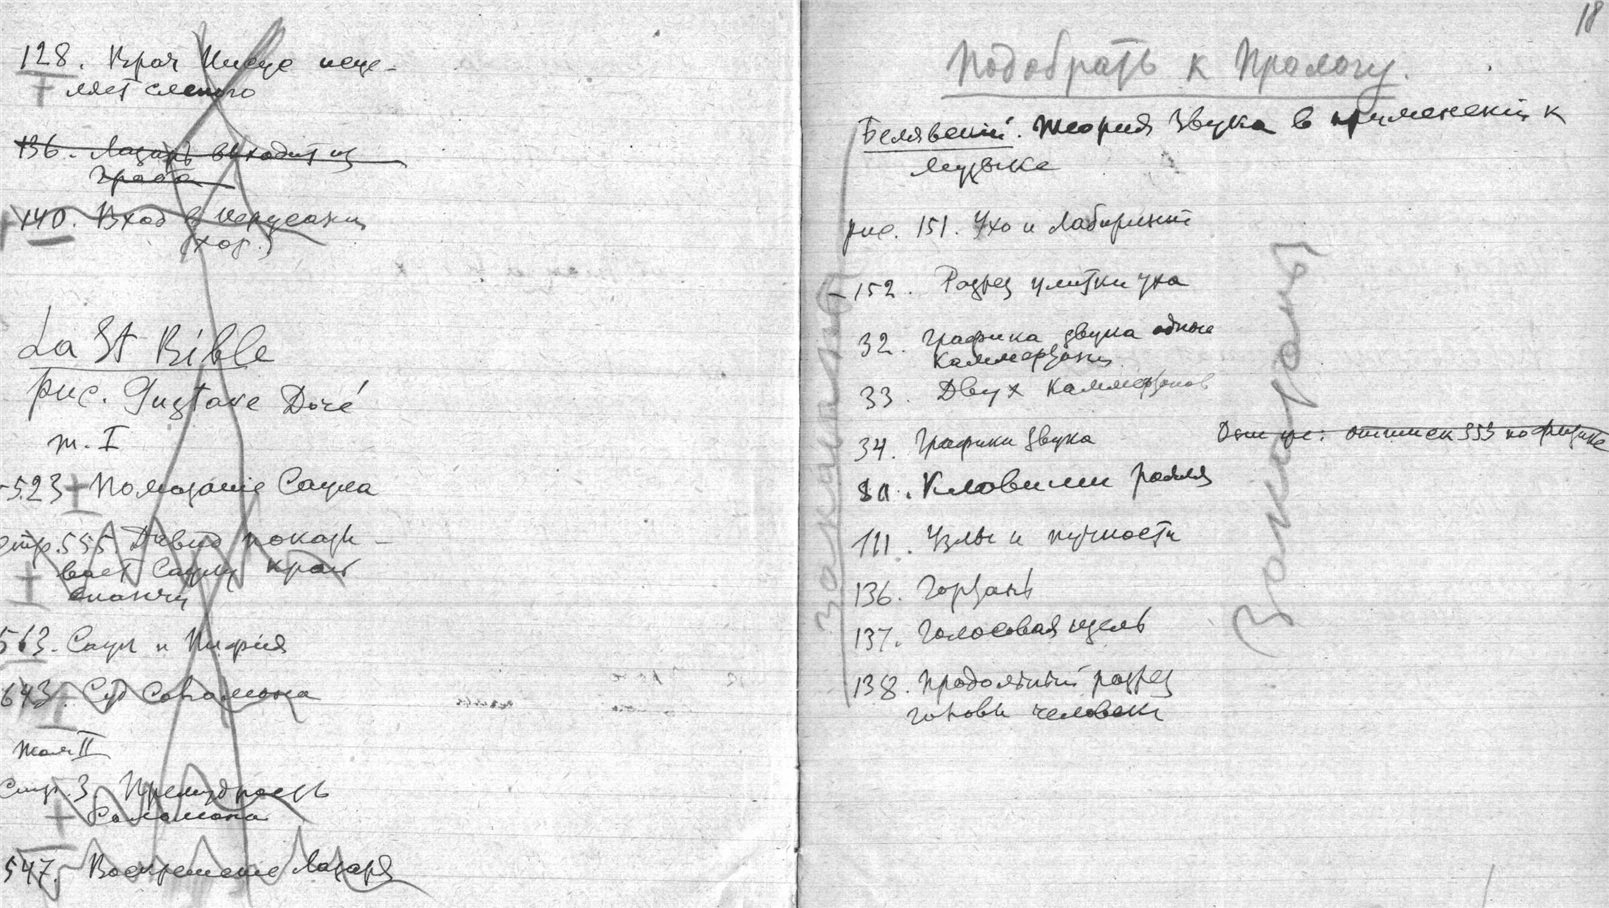 128. Врач Иисус исце-
ляет слепого
136. Лазарь выходит из
гроба
140. Вход в Иерусалим
(хор.)
La St Bible
рис. Gustave Doré
т. I
523 Помазание Саула
стр. 555 Давид показы-
вает Саулу край
епанчи
563. Саул и Пифия
643. Суд Соломона
том II
Стр. 3. Премудрость
Соломона
547. Воскрешение Лазаря
18
Подобрать к Прологу.
Белявский. Теория звука в применении к
музыке
рис. 151. Ухо и лабиринт
152. Разрез улитки уха
32. Графика звука одного
каммертона
33. Двух каммертонов
34. Графики звука
80. Клавиши рояля
111. Узлы и пучности
136. Гортань
137. Голосовая щель
138. Продольный разрез
головы человека